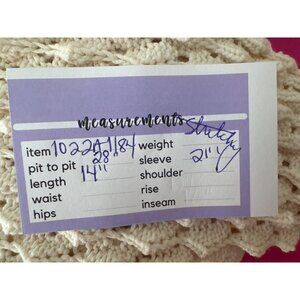 measurements
item 1022A1184 weight Stretchy
pit to pit 28" sleeve 21"
length 14" shoulder
waist rise
hips inseam